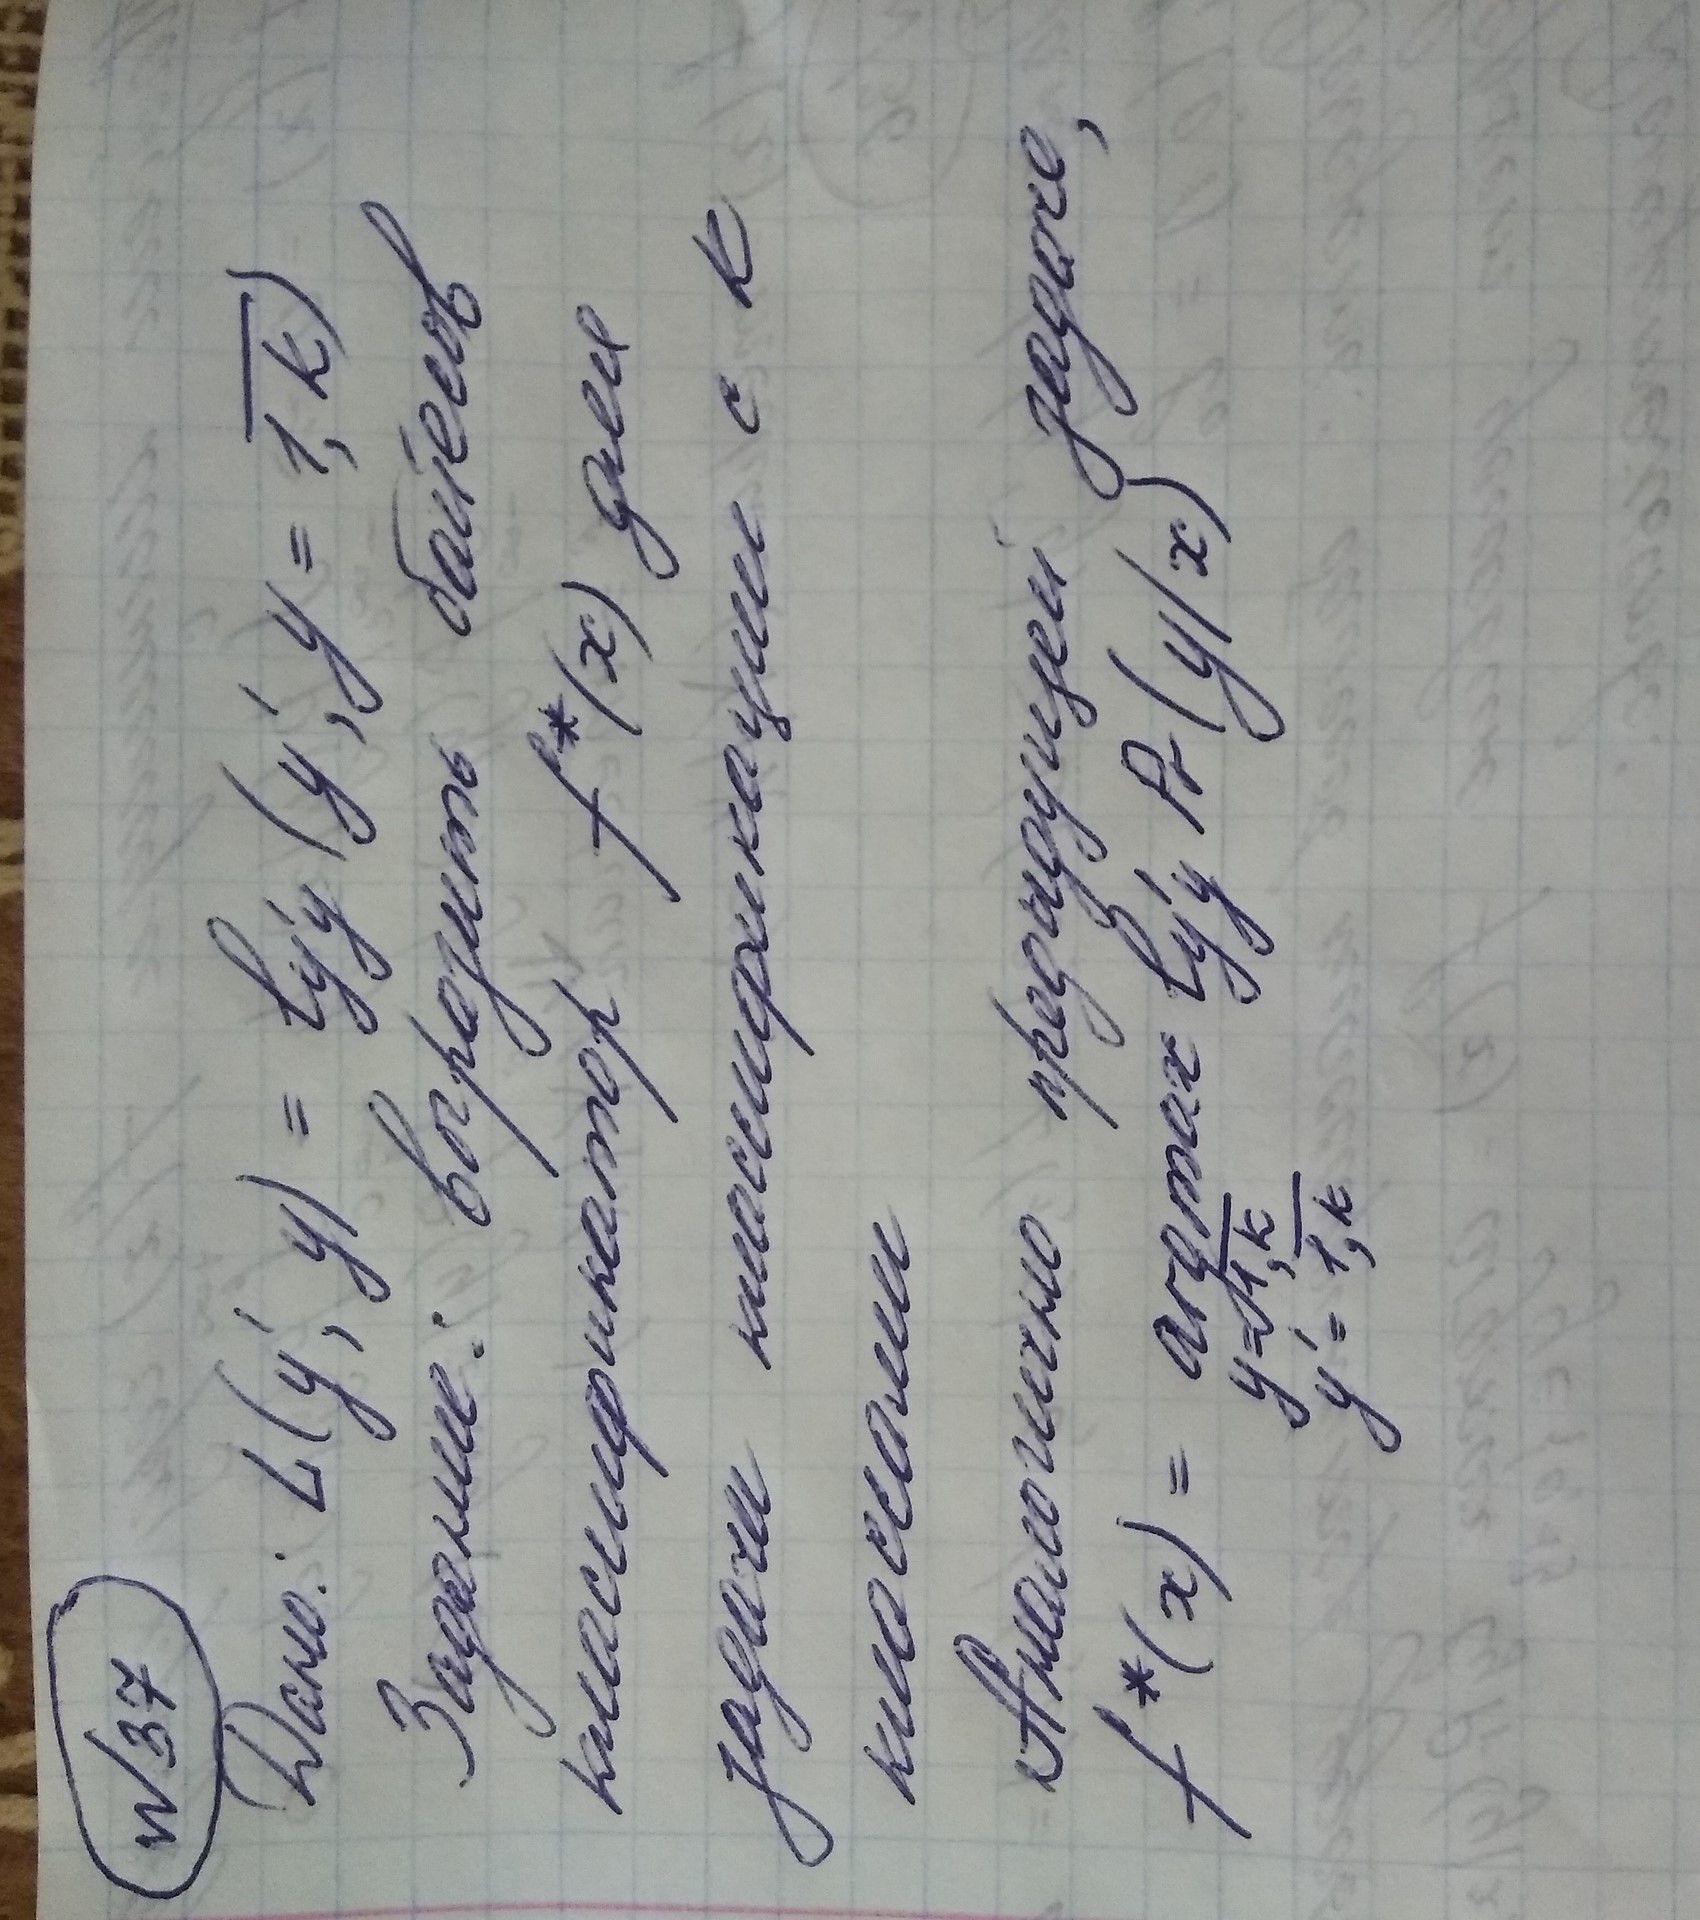 N37
Дано: L(y', y) = ly'y (y', y = 1, K)
Задание: выразить байесов
классификатор f*(x) для
задачи классификации с K
классами
Аналогично предыдущей задаче,
f*(x) = argmax ly'y Pr(y|x)
y = 1, K
y' = 1, K